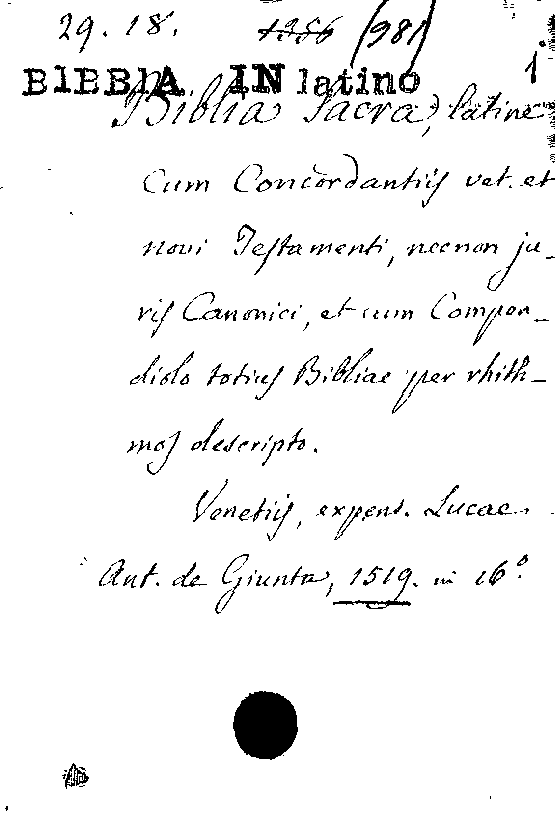 29. 18. 1256 (981)
1°
BIBBIA IN latino
Biblia Sacra, latine
Cum Concordantiis vet. et
novi Testamenti, necnon ju-
ris Canonici, et cum Compen-
diolo totius Bibliae per rhith-
mos descripto.
Venetiis, expens. Lucae
Ant. de Giunta, 1519. in 16°.